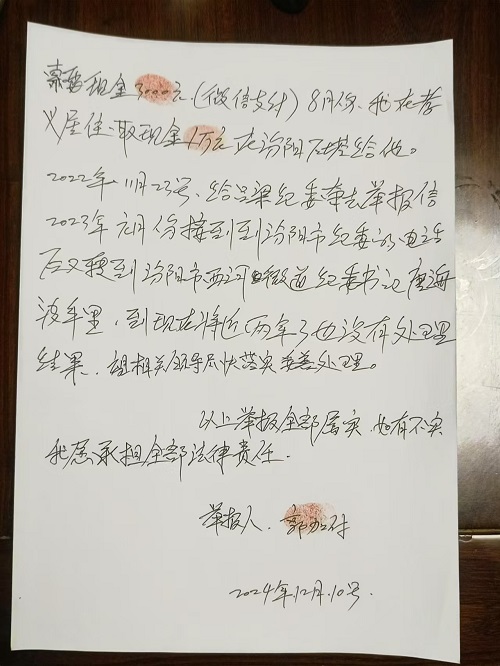 索要现金3000元(微信支付)8月份，我在孝
义居住、取现金1万元在汾阳石塔给他。
2022年11月23号、给吕梁纪委寄去举报信
2023年元月份接到到汾阳市纪委的电话
后又转到汾阳市西河街道纪委书记
波手里，到现在将近两年了也没有处理
结果，望相关领导尽快落实 处理。
以上举报全部属实，如有不实
我愿承担全部法律责任.
举报人.
2024年.12月.10号.